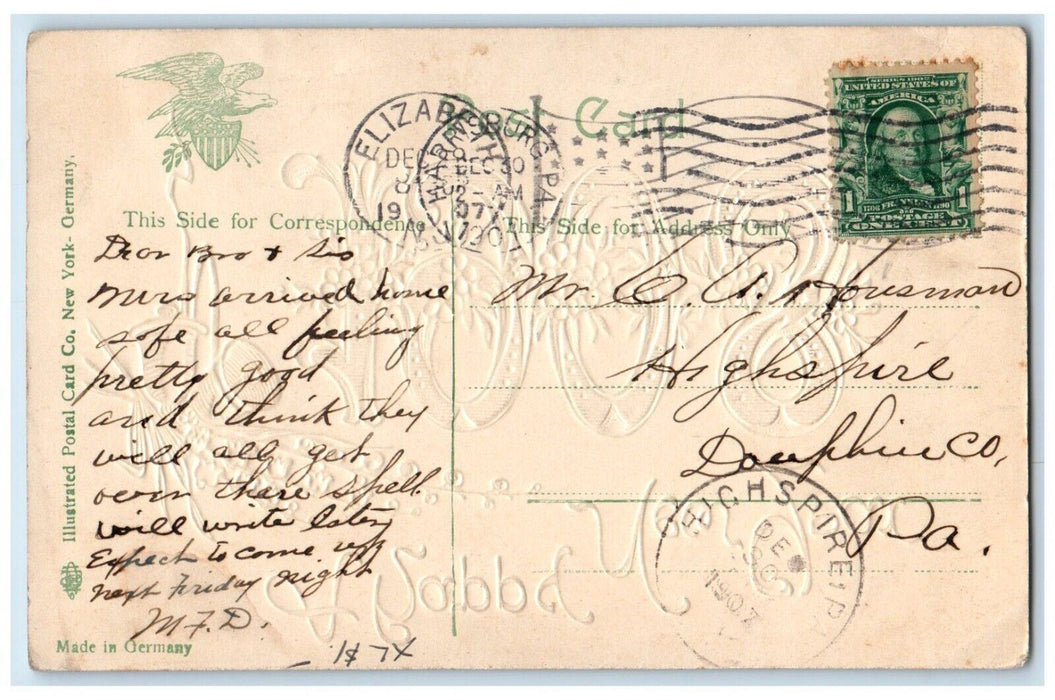 Post Card
ELIZABETH
DEC
19
N.J.
HARRISBURG, PA.
DEC 30
AM
07
SERIES 1902
UNITED STATES OF
AMERICA
1 1
FRANKLIN
POSTAGE
ONE CENT
This Side for Correspondence
This Side for Address Only
Dear Bro + Sis
arrived home
safe all feeling
pretty good
and think they
will all get
over there spell.
will write later
Expect to come up
next Friday night
M.F.D.
Mr. C. A. Housman
Highspire
Dauphin Co,
Pa.
HIGHSPIRE PA
DEC
30
1907
Illustrated Postal Card Co. New York - Germany.
Made in Germany
1908
A Happy New Year